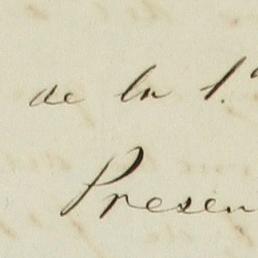 de la 1.a
Presen